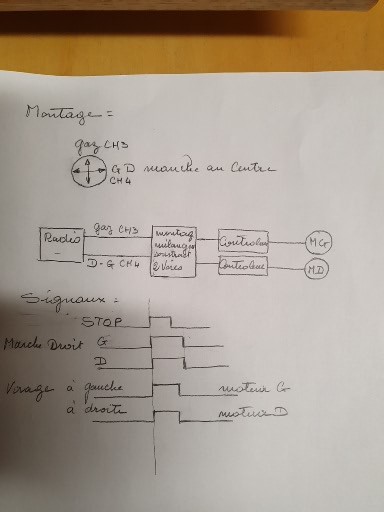 Montage =
gaz CH3
G D manche au Centre
CH4
Radio
gaz CH3
D-G CH4
montage
mélangeur
2 Voies
Controleur
MG
Controleur
MD
Signaux =
STOP
Marche Droit G
D
Virage à gauche moteur G
à droite moteur D